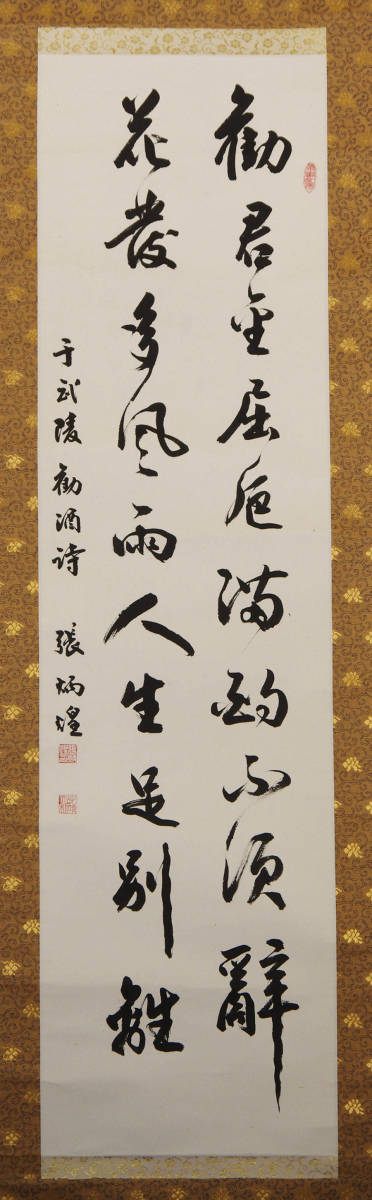 勸君金屈卮滿酌不須辭
花發多風雨人生足別離
于武陵勸酒詩 張炳煌